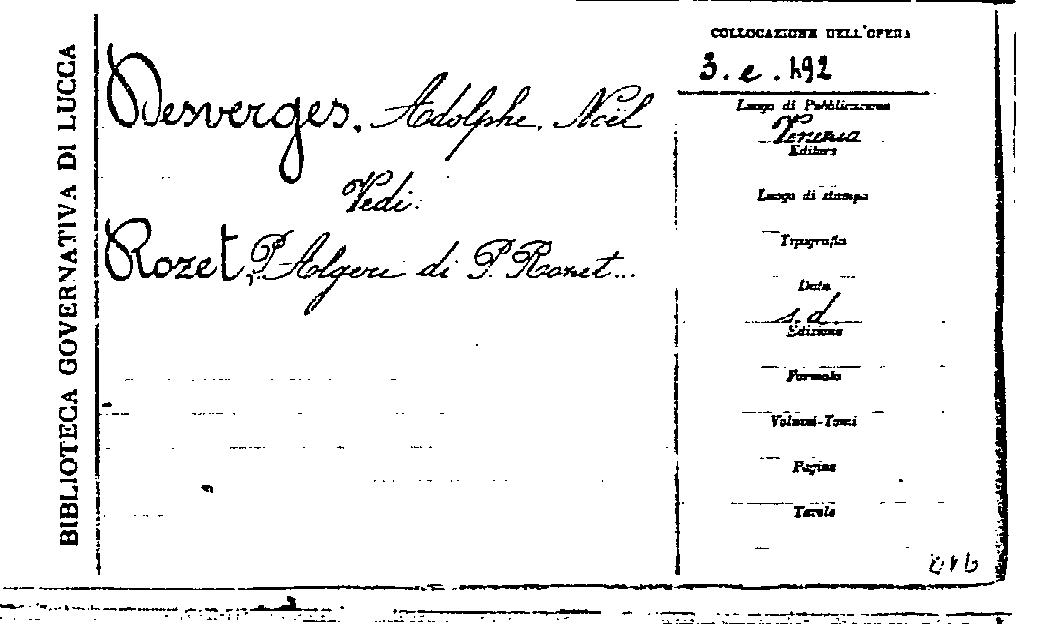 BIBLIOTECA GOVERNATIVA DI LUCCA
Desverges, Adolphe, Noël
Vedi:
Rozet, P. Algeri di P. Rozet...
COLLOCAZIONE DELL'OPERA
3. e. 192
Luogo di Pubblicazione
Venezia
Editore
Luogo di stampa
Tipografia
Data
s. d.
Edizione
Formato
Volumi-Tomi
Pagine
Tavole